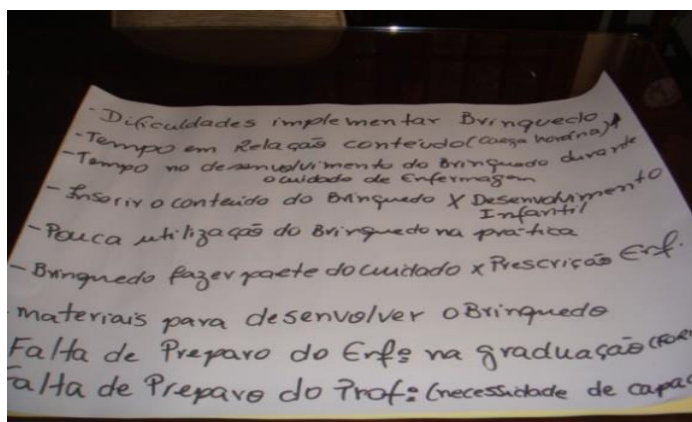 - Dificuldades implementar Brinquedo
- Tempo em Relação conteúdo (carga horária)
- Tempo no desenvolvimento do Brinquedo durante
o cuidado de Enfermagem
- Inserir o conteúdo do Brinquedo X Desenvolvimento
Infantil
- Pouca utilização do Brinquedo na prática
- Brinquedo fazer parte do cuidado x Prescrição Enf.
materiais para desenvolver o Brinquedo
Falta de Preparo do Enfº na graduação
Falta de Preparo do Profº (necessidade de capac